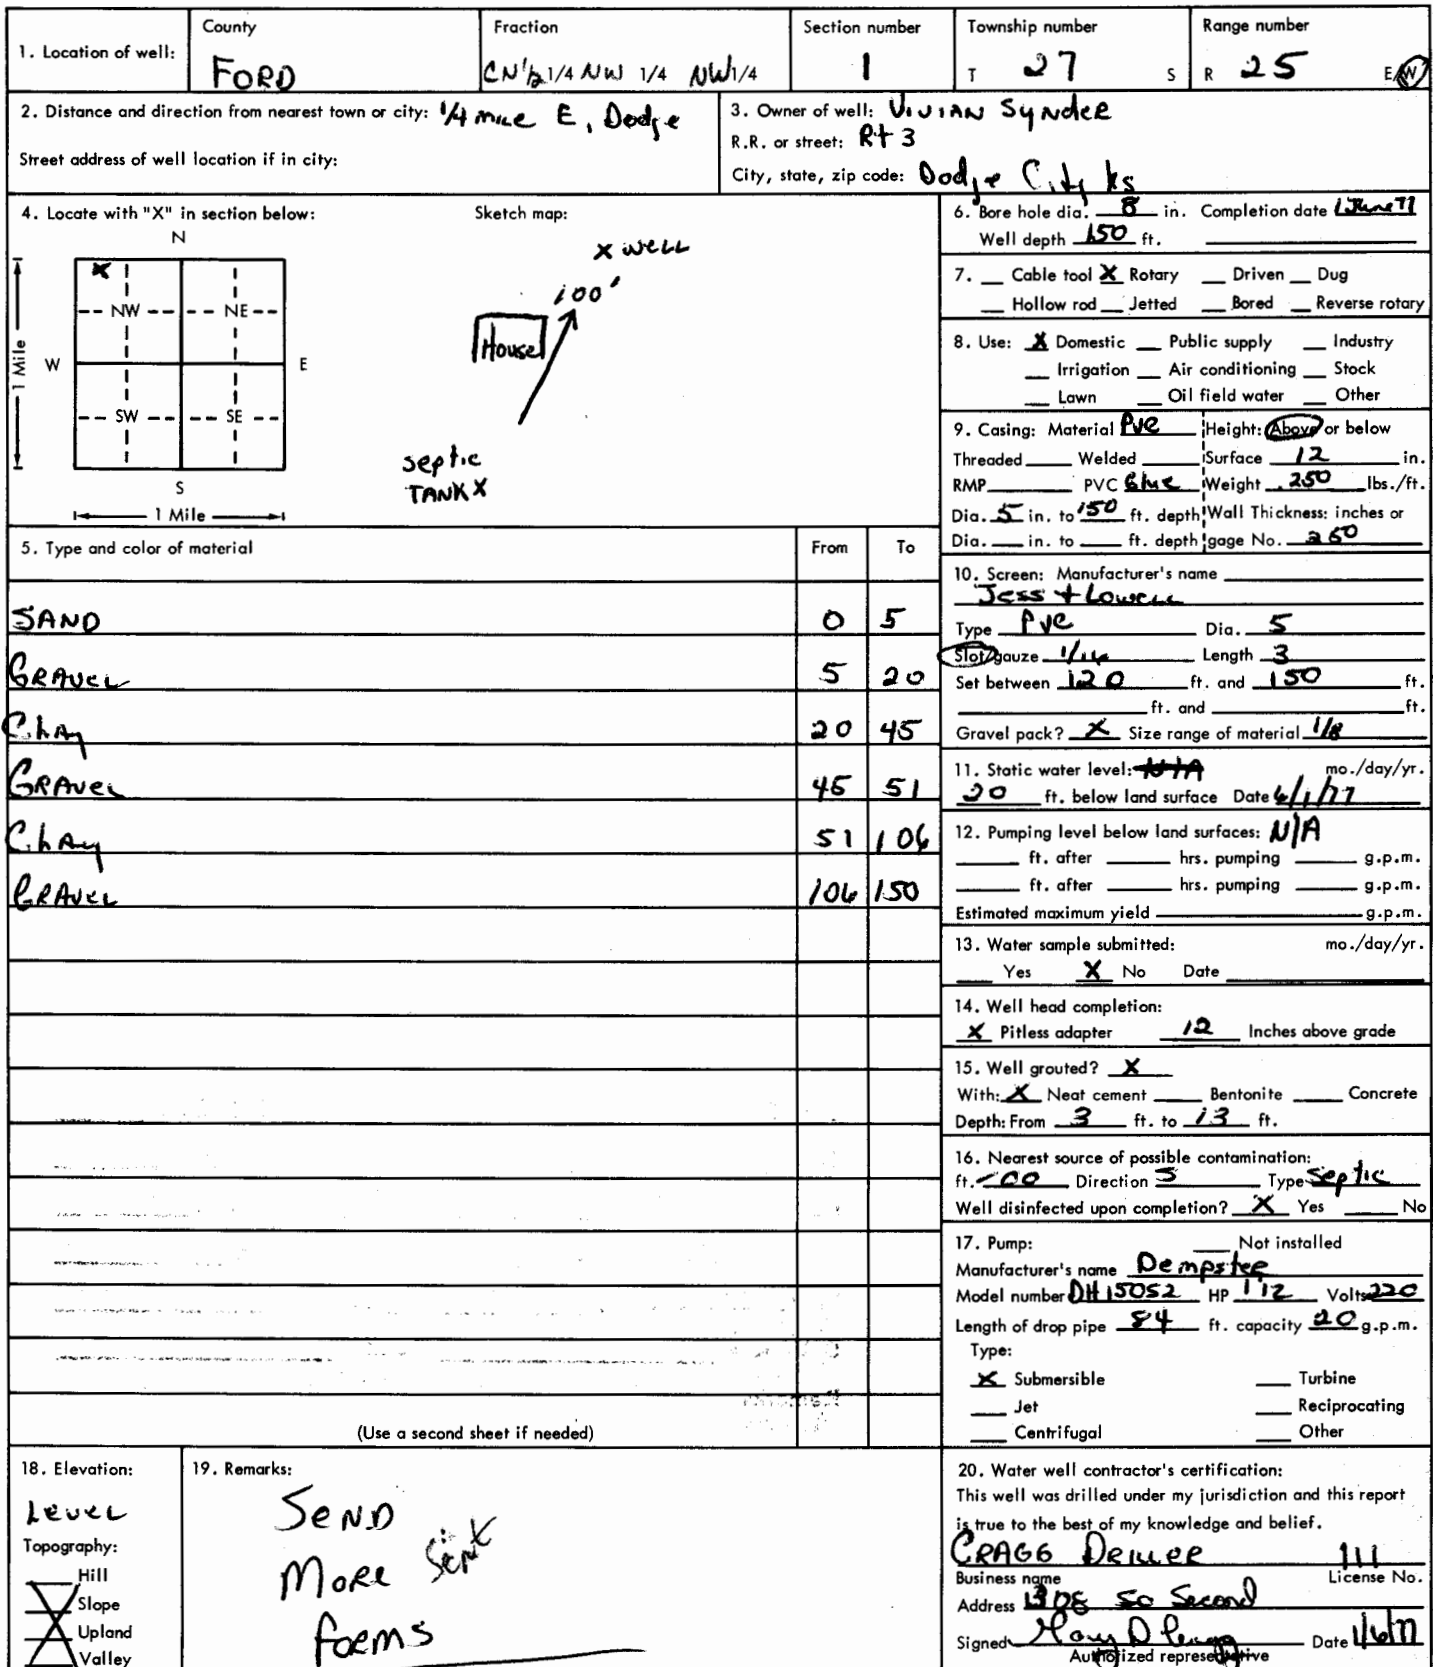 County
Fraction
Section number
Township number
Range number
1. Location of well:
FORD
CN½ 1/4 NW 1/4 NW 1/4
1
T 27 S
R 25 E/W
2. Distance and direction from nearest town or city: 1/4 mile E, Dodge
Street address of well location if in city:
3. Owner of well: Vivian Synder
R.R. or street: Rt 3
City, state, zip code: Dodge City Ks
4. Locate with "X" in section below:
Sketch map:
N
X
NW NE
W E
SW SE
S
1 Mile
1 Mile
X WELL
100'
House
septic
TANK X
5. Type and color of material From To
SAND 0 5
GRAVEL 5 20
CLAY 20 45
GRAVEL 45 51
CLAY 51 106
GRAVEL 106 150
(Use a second sheet if needed)
6. Bore hole dia. 8 in. Completion date 1 June 77
Well depth 150 ft.
7. __ Cable tool X Rotary __ Driven __ Dug
__ Hollow rod __ Jetted __ Bored __ Reverse rotary
8. Use: X Domestic __ Public supply __ Industry
__ Irrigation __ Air conditioning __ Stock
__ Lawn __ Oil field water __ Other
9. Casing: Material PVC Height: Above or below
Threaded ____ Welded ____ Surface 12 in.
RMP ____ PVC Glue Weight .250 lbs./ft.
Dia. 5 in. to 150 ft. depth Wall Thickness: inches or
Dia. __ in. to __ ft. depth gage No. 250
10. Screen: Manufacturer's name
Jess + Lowell
Type PVC Dia. 5
Slot/gauze 1/16 Length 3
Set between 120 ft. and 150 ft.
____ ft. and ____ ft.
Gravel pack? X Size range of material 1/8
11. Static water level: N/A mo./day/yr.
20 ft. below land surface Date 6/1/77
12. Pumping level below land surfaces: N/A
____ ft. after ____ hrs. pumping ____ g.p.m.
____ ft. after ____ hrs. pumping ____ g.p.m.
Estimated maximum yield ____ g.p.m.
13. Water sample submitted: mo./day/yr.
__ Yes X No Date ____
14. Well head completion:
X Pitless adapter 12 Inches above grade
15. Well grouted? X
With: X Neat cement ____ Bentonite ____ Concrete
Depth: From 3 ft. to 13 ft.
16. Nearest source of possible contamination:
ft. 100 Direction S Type Septic
Well disinfected upon completion? X Yes ____ No
17. Pump: ____ Not installed
Manufacturer's name Dempster
Model number DH15052 HP 1 1/2 Volts 220
Length of drop pipe 84 ft. capacity 20 g.p.m.
Type:
X Submersible __ Turbine
__ Jet __ Reciprocating
__ Centrifugal __ Other
18. Elevation:
Level
Topography:
Hill
Slope
Upland
Valley
19. Remarks:
Send
More Sent
forms
20. Water well contractor's certification:
This well was drilled under my jurisdiction and this report
is true to the best of my knowledge and belief.
CRAGG 111
Business name License No.
Address 1308 So Second
Signed Date 1/6/77
Authorized representative